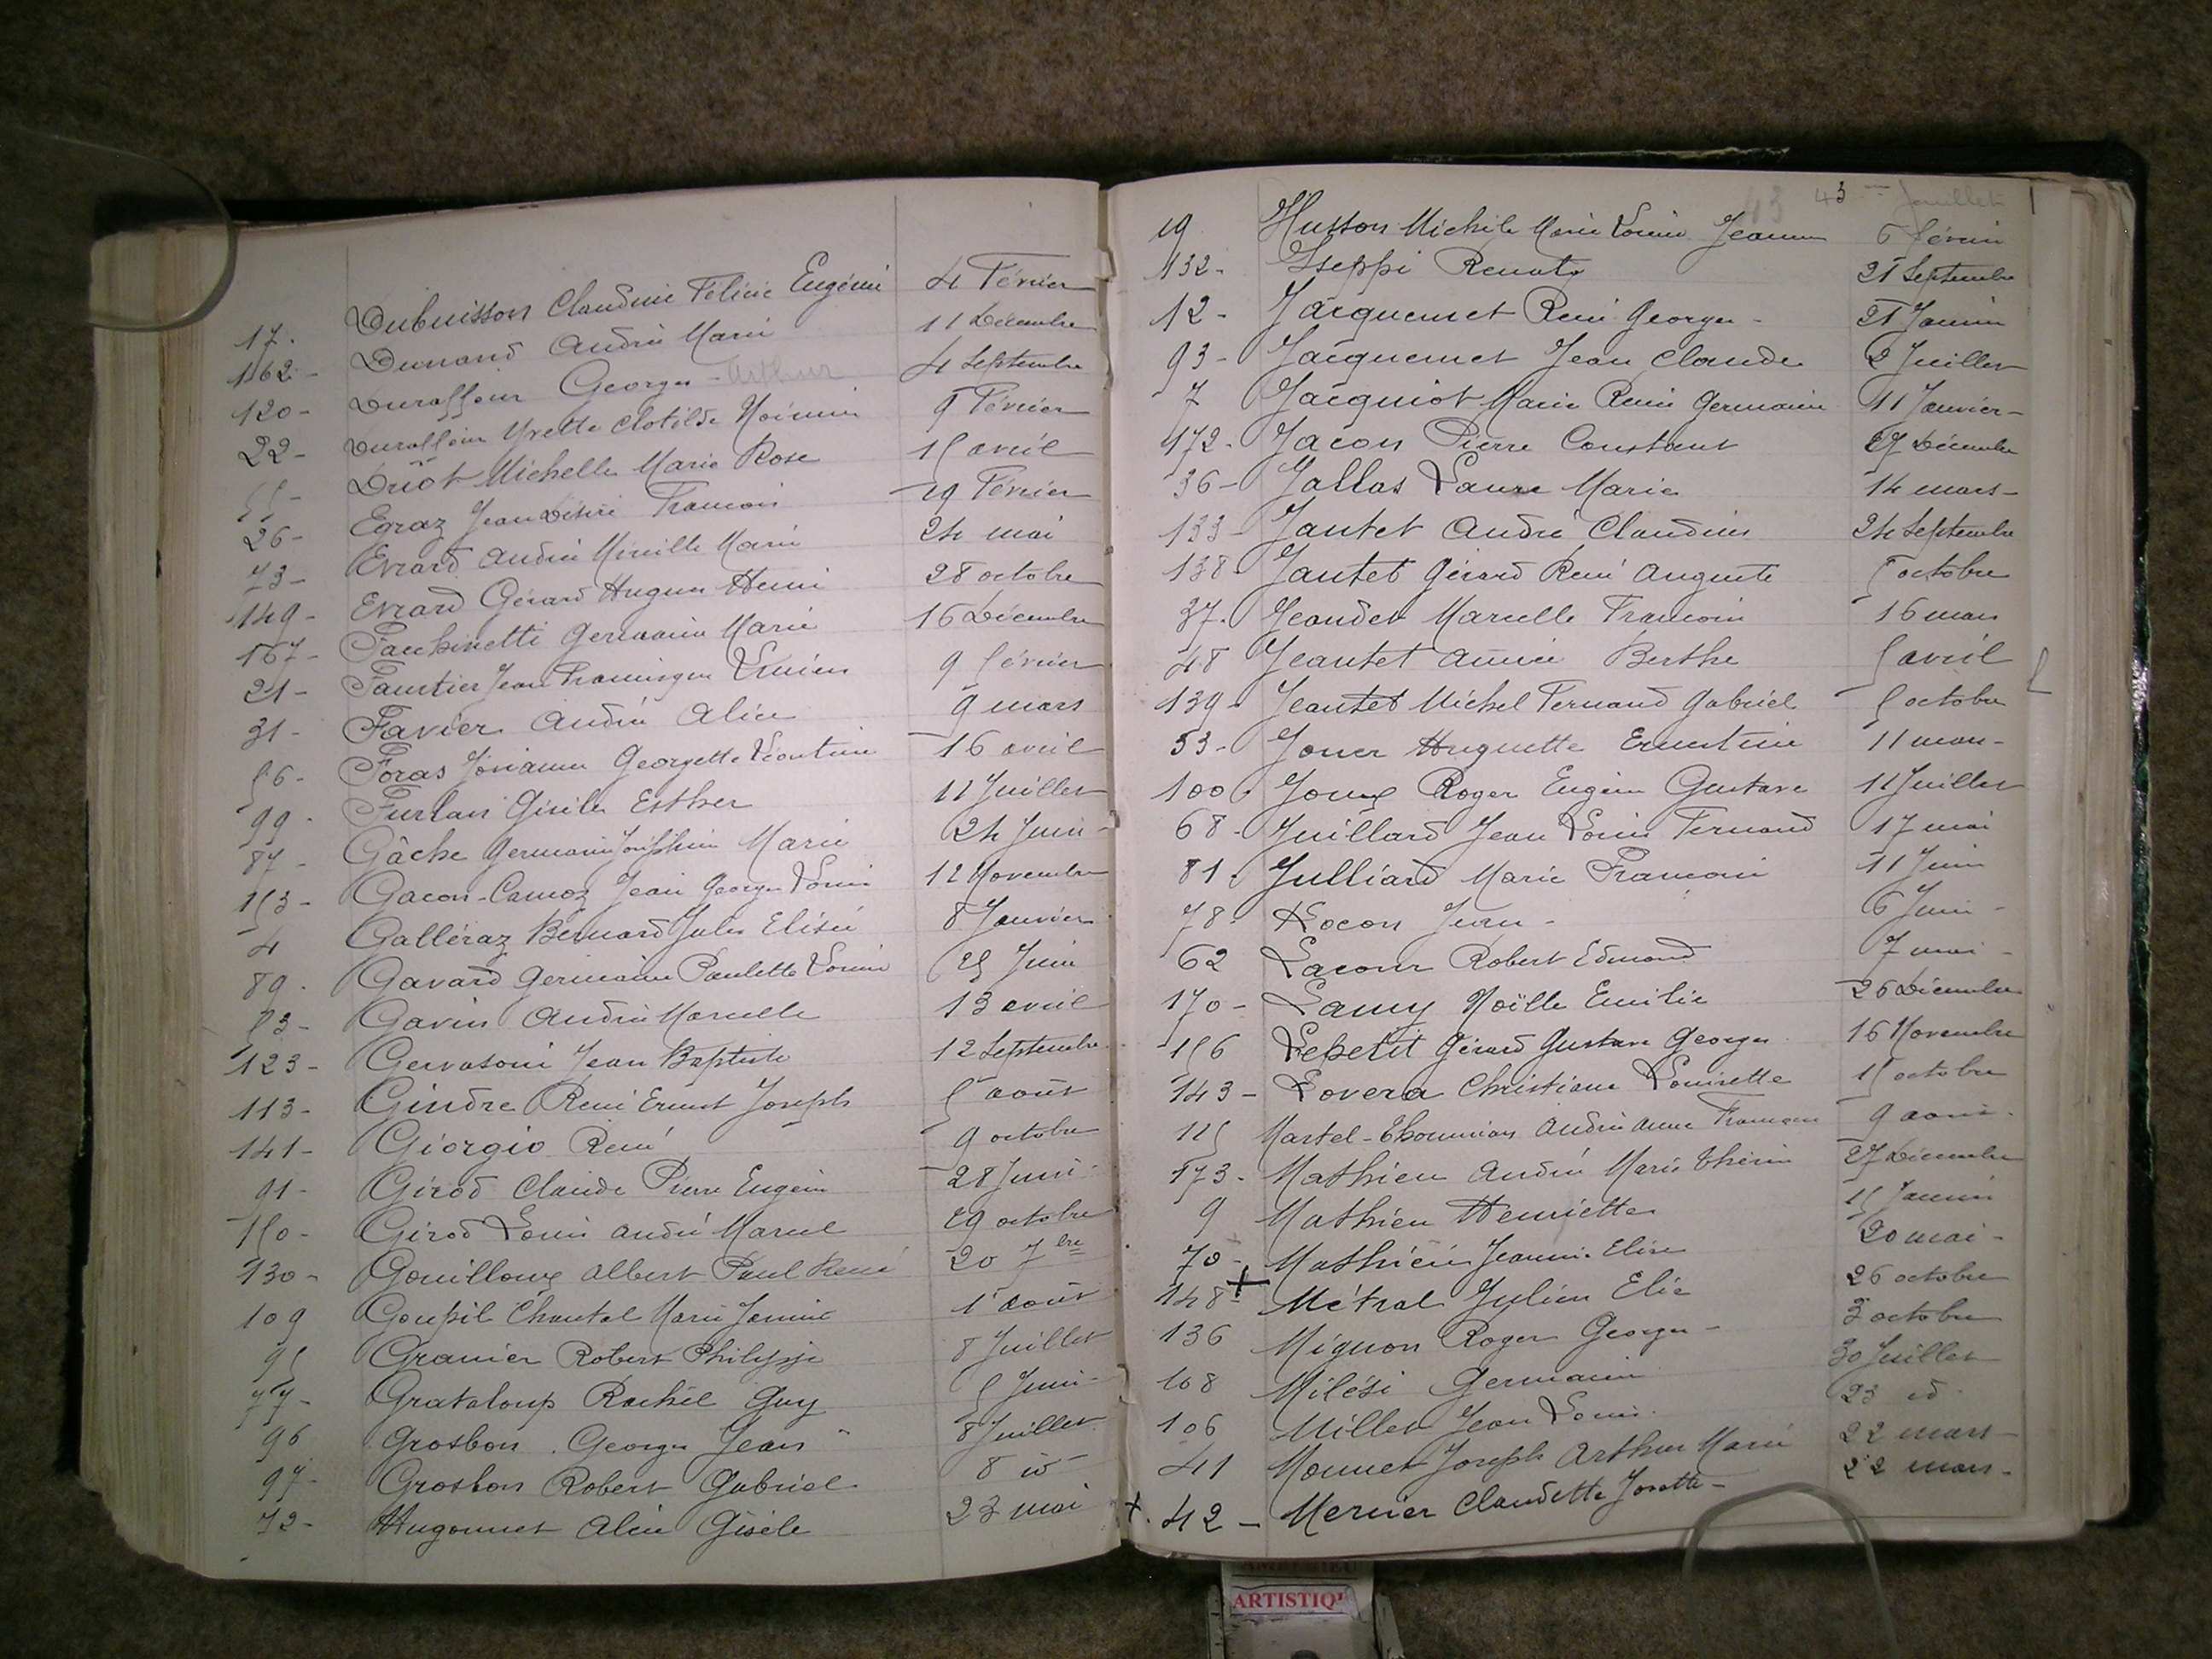 17. Dubuisson Claudine Félicie Eugénie 4 Février
162 - Dunand Andrée Marie 11 Décembre
120 - Duraffour Georges - Arthur 4 Septembre
22 - Duraffour Yvette Clotilde Noémie 9 Février
55 - Duôt Michelle Marie Rose 15 avril
26 - Egraz Jean Désiré François 19 Février
73 - Evrard Andrée Mireille Marie 24 mai
149 - Evrard Gérard Hugues Henri 28 octobre
167 - Facchinetti Germaine Marie 16 Décembre
21 - Faustier Jean Dominique Lucien 9 février
31 - Favier Andrée Alice 9 mars
56 - Foras Georgette Léontine 16 avril
99 - Furlan Gisèle Esther 11 Juillet
87 - Gâche Germaine Joséphine Marie 24 Juin -
153 - Gacon-Camoz Jean Georges Louis 12 Novembre
4 Galléraz Bernard Jules Elisée 8 Janvier
89. Gavard Germaine Paulette Louise 25 Juin
53 - Gavin Andrée Marcelle 13 avril
123 - Gervasoni Jean Baptiste 12 Septembre
113 - Gindre René Ernest Joseph 5 août
141 - Giorgio René 9 octobre
91 - Girod Claude Pierre Eugène 28 Juin
150 - Girod Louis André Marcel 29 octobre
130 - Gouilloux Albert Paul René 20 7bre
109 Goupil Chantal Marie Janine 1 août
95 Granier Robert Philippe 8 Juillet
77 - Grataloup Rachel Guy 5 Juin -
96 Grosbon Georges Jean 8 Juillet
97 - Grosbon Robert Gabriel 8 id
72 - Hugonnet Alice Gisèle 23 mai
43 Juillet
19 Husson Michèle Marie Louise Jeanne 6 février
132 - Iseppi Renato 21 Septembre
12 - Jacquemet René Georges - 21 Janvier
93 - Jacquemet Jean Claude 2 Juillet
7 Jacquiot Marie Renée Germaine 11 Janvier -
172 - Jacon Pierre Constant 27 Décembre
36 - Jallas Laure Marie 14 mars -
133 - Jantet André Claudius 24 Septembre
138 - Jantet Gérard René Auguste 5 octobre
37. Jeandet Marcelle Françoise 16 mars
48 Jeantet Aimée Berthe 5 avril
139 - Jeantet Michel Fernand Gabriel 5 octobre
33 - Huguette Ernestine 11 mars -
100. Joux Roger Eugène Gustave 11 Juillet
68 - Juillard Jean Louis Fernand 17 mai
81. Julliard Marie Françoise 11 Juin
78 - Kocon Jean - 6 Juin -
62 Lacour Robert Edmond 7 mai -
170 - Lamy Noëlle Emilie 26 Décembre
156 Lepetit Gérard Gustave Georges 16 Novembre
143 - Lovera Christiane Louisette 15 octobre
115 Martel- Andrée Anne 9 août.
173 - Mathieu Andrée Marie Thérèse 27 Décembre
9 Mathieu Henriette 15 Janvier
70 - Mathieu Jeanne Elise 20 mai -
148 - + Métral Julien Elie 26 octobre
136 Mignon Roger Georges - 3 octobre
108 Milési Germaine 30 Juillet
106 Millet Jean Louis 23 id
41 Monnet Joseph Arthur Marie 22 mars -
+. 42 - Mernier Claudette Josette - 22 mars -
ARTISTIQ